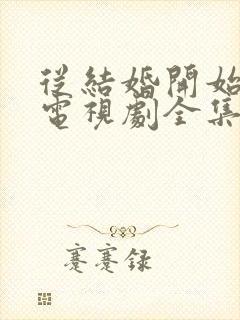 從結婚開始
電視劇全集
蹇蹇録